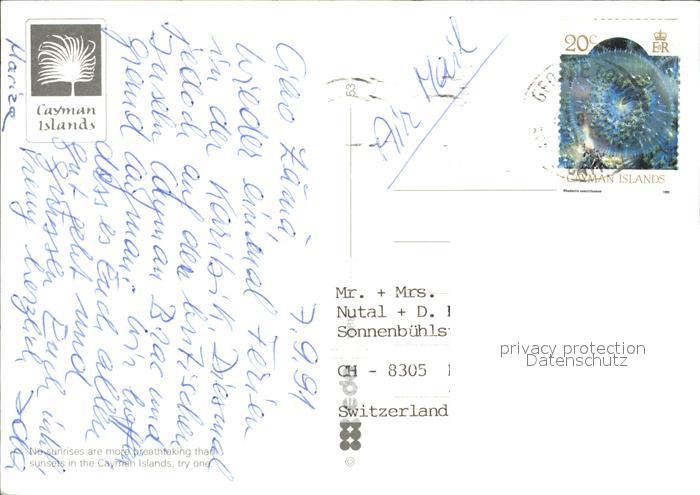 Cayman
Islands
7.9.91
Ciao Zämä
Wieder einmal Ferien
in der Karibik. Diesmal
jedoch auf den britischen
Inseln Cayman Brac und
Grand Cayman. Wir hoffen
dass es Euch allen
gut geht und
grüssen Euch
herzlich
Marize
No sunrises are more breathtaking than
sunsets in the Cayman Islands, try one
Air Mail
20c
E R
GEORGE
CAYMAN ISLANDS
Mr. + Mrs.
Nutal + D.
Sonnenbühls
CH - 8305
Switzerland
privacy protection
Datenschutz
©